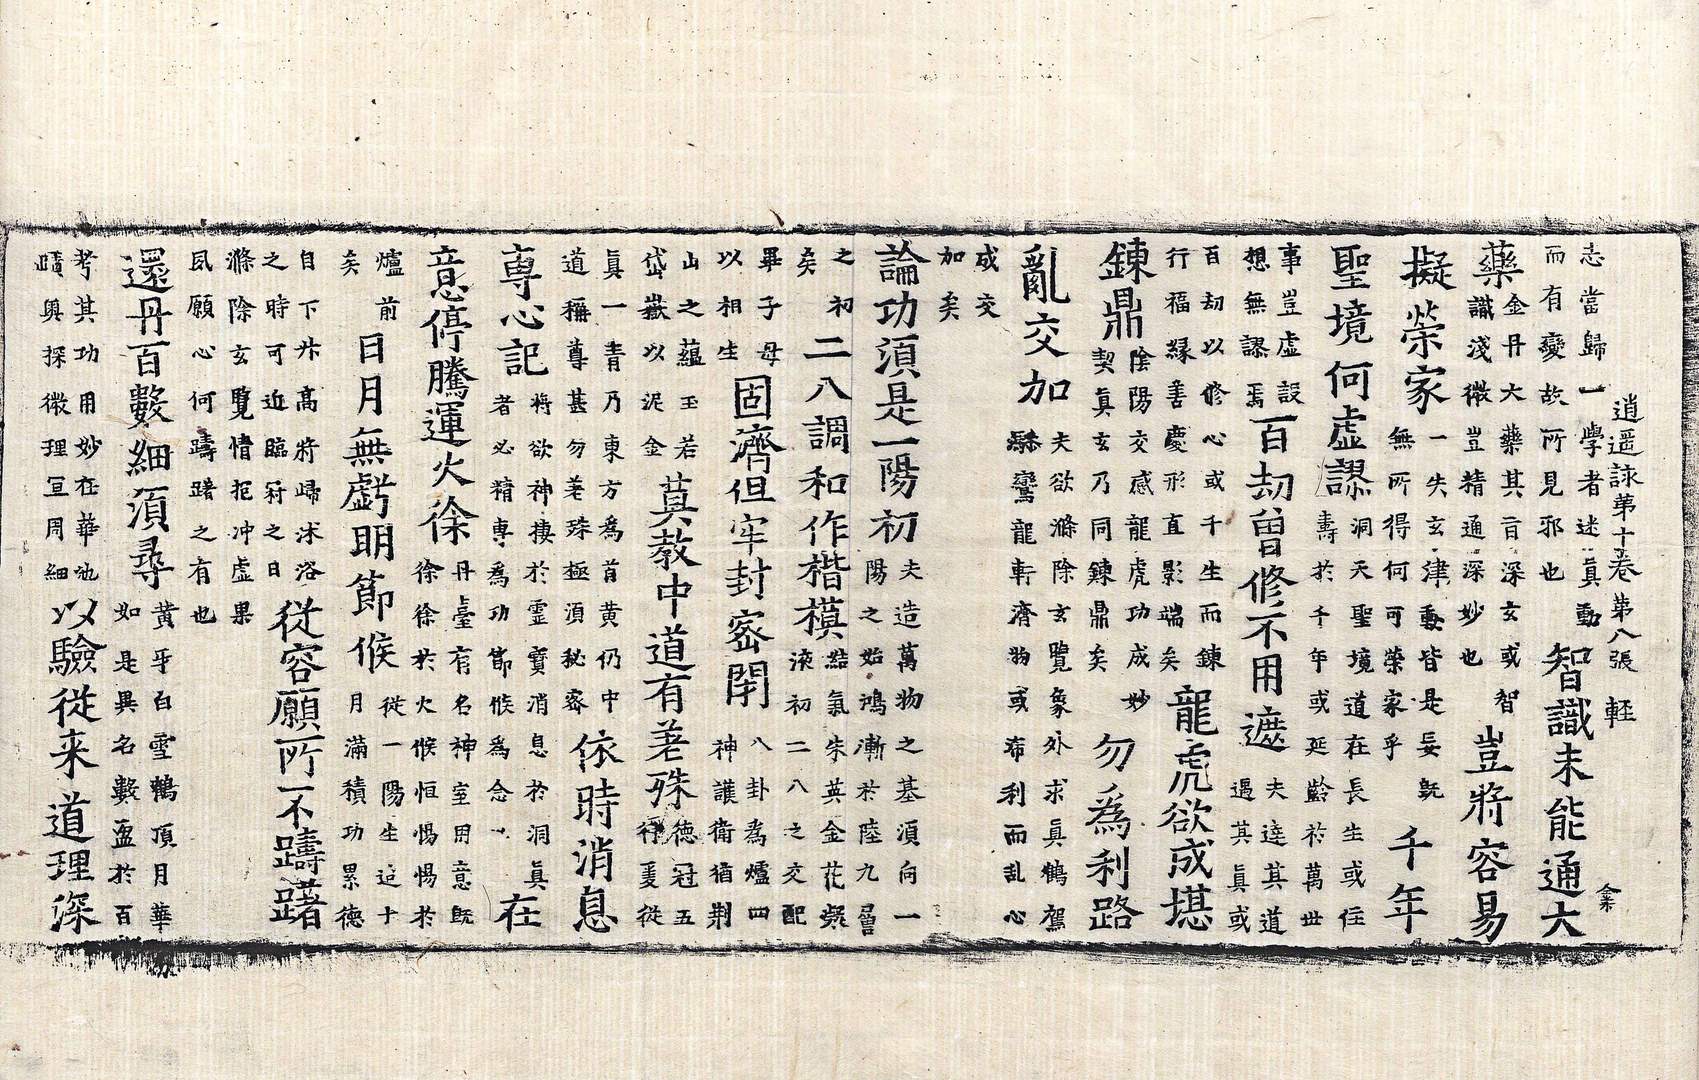 逍遥詠第十卷 第八張 輕
志當歸一學者迷真動
而有變故所見邪也
智識未能通大
藥
金丹大藥其旨深玄或智
識淺微豈精通深妙也
豈將容易
擬榮家
一失玄津動皆是妄旣
無所得何可榮家乎
千年
聖境何虛謬
洞天聖境道在長生或住
壽於千年或延齡於萬世
事豈虛設
想無謬焉
百劫曾修不用遮
夫達其道
遇其真或
百劫以修心或千生而鍊
行福緣善慶形直影端矣
龍虎欲成堪
鍊鼎
陰陽交感龍虎功成妙
契真玄乃同鍊鼎矣
勿為利路
亂交加
夫欲滌除玄覽象外求真鶴駕
驂鸞龍軒濟物或布利而乱心
成交
加矣
論功須是一陽初
夫造萬物之基須向一
陽之始鴻漸於陸九層
之初
矣
二八調和作楷模
結氣朱英金花凝
液初二八之交配
畢子母
以相生
固濟但牢封密閉
八卦為爐四
神護衛猶荆
山之蘊玉若
岱嶽以泥金
真教中道有差殊
德冠五
行從
真一青乃東方為首黃仍中
道稱尊甚勿差殊極須秘密
依時消息
專心記
將欲神棲於靈寶消息於洞真
者必精專為功節候為念
在
意停騰運火徐
丹臺有名神室用意旣
徐徐於火候恒惕惕於
爐前
矣
日月無虧明節候
從一陽生迄十
月滿積功累德
自下升高將歸沐浴
之時可近臨符之日
從容願所不躊躇
滌除玄覽情拒冲虛果
夙願心何躊躇之有也
還丹百數細須尋
黃牙白雪鶴頂月華
如是異名數盈於百
考其功用妙在華池
賾興探微理宜周細
以驗從来道理深